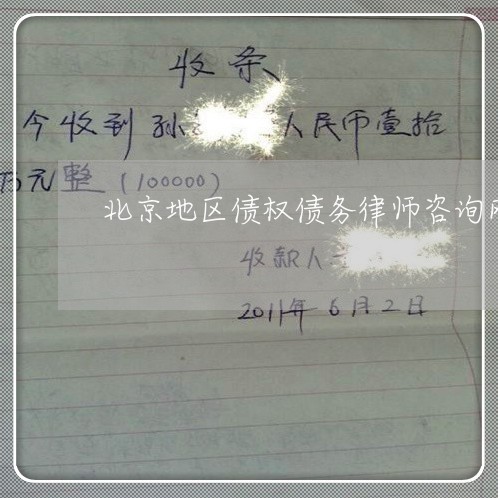 收条
今收到孙 人民币壹拾
万元整(100000)
北京地区债权债务律师咨询
收款人
2011年6月2日